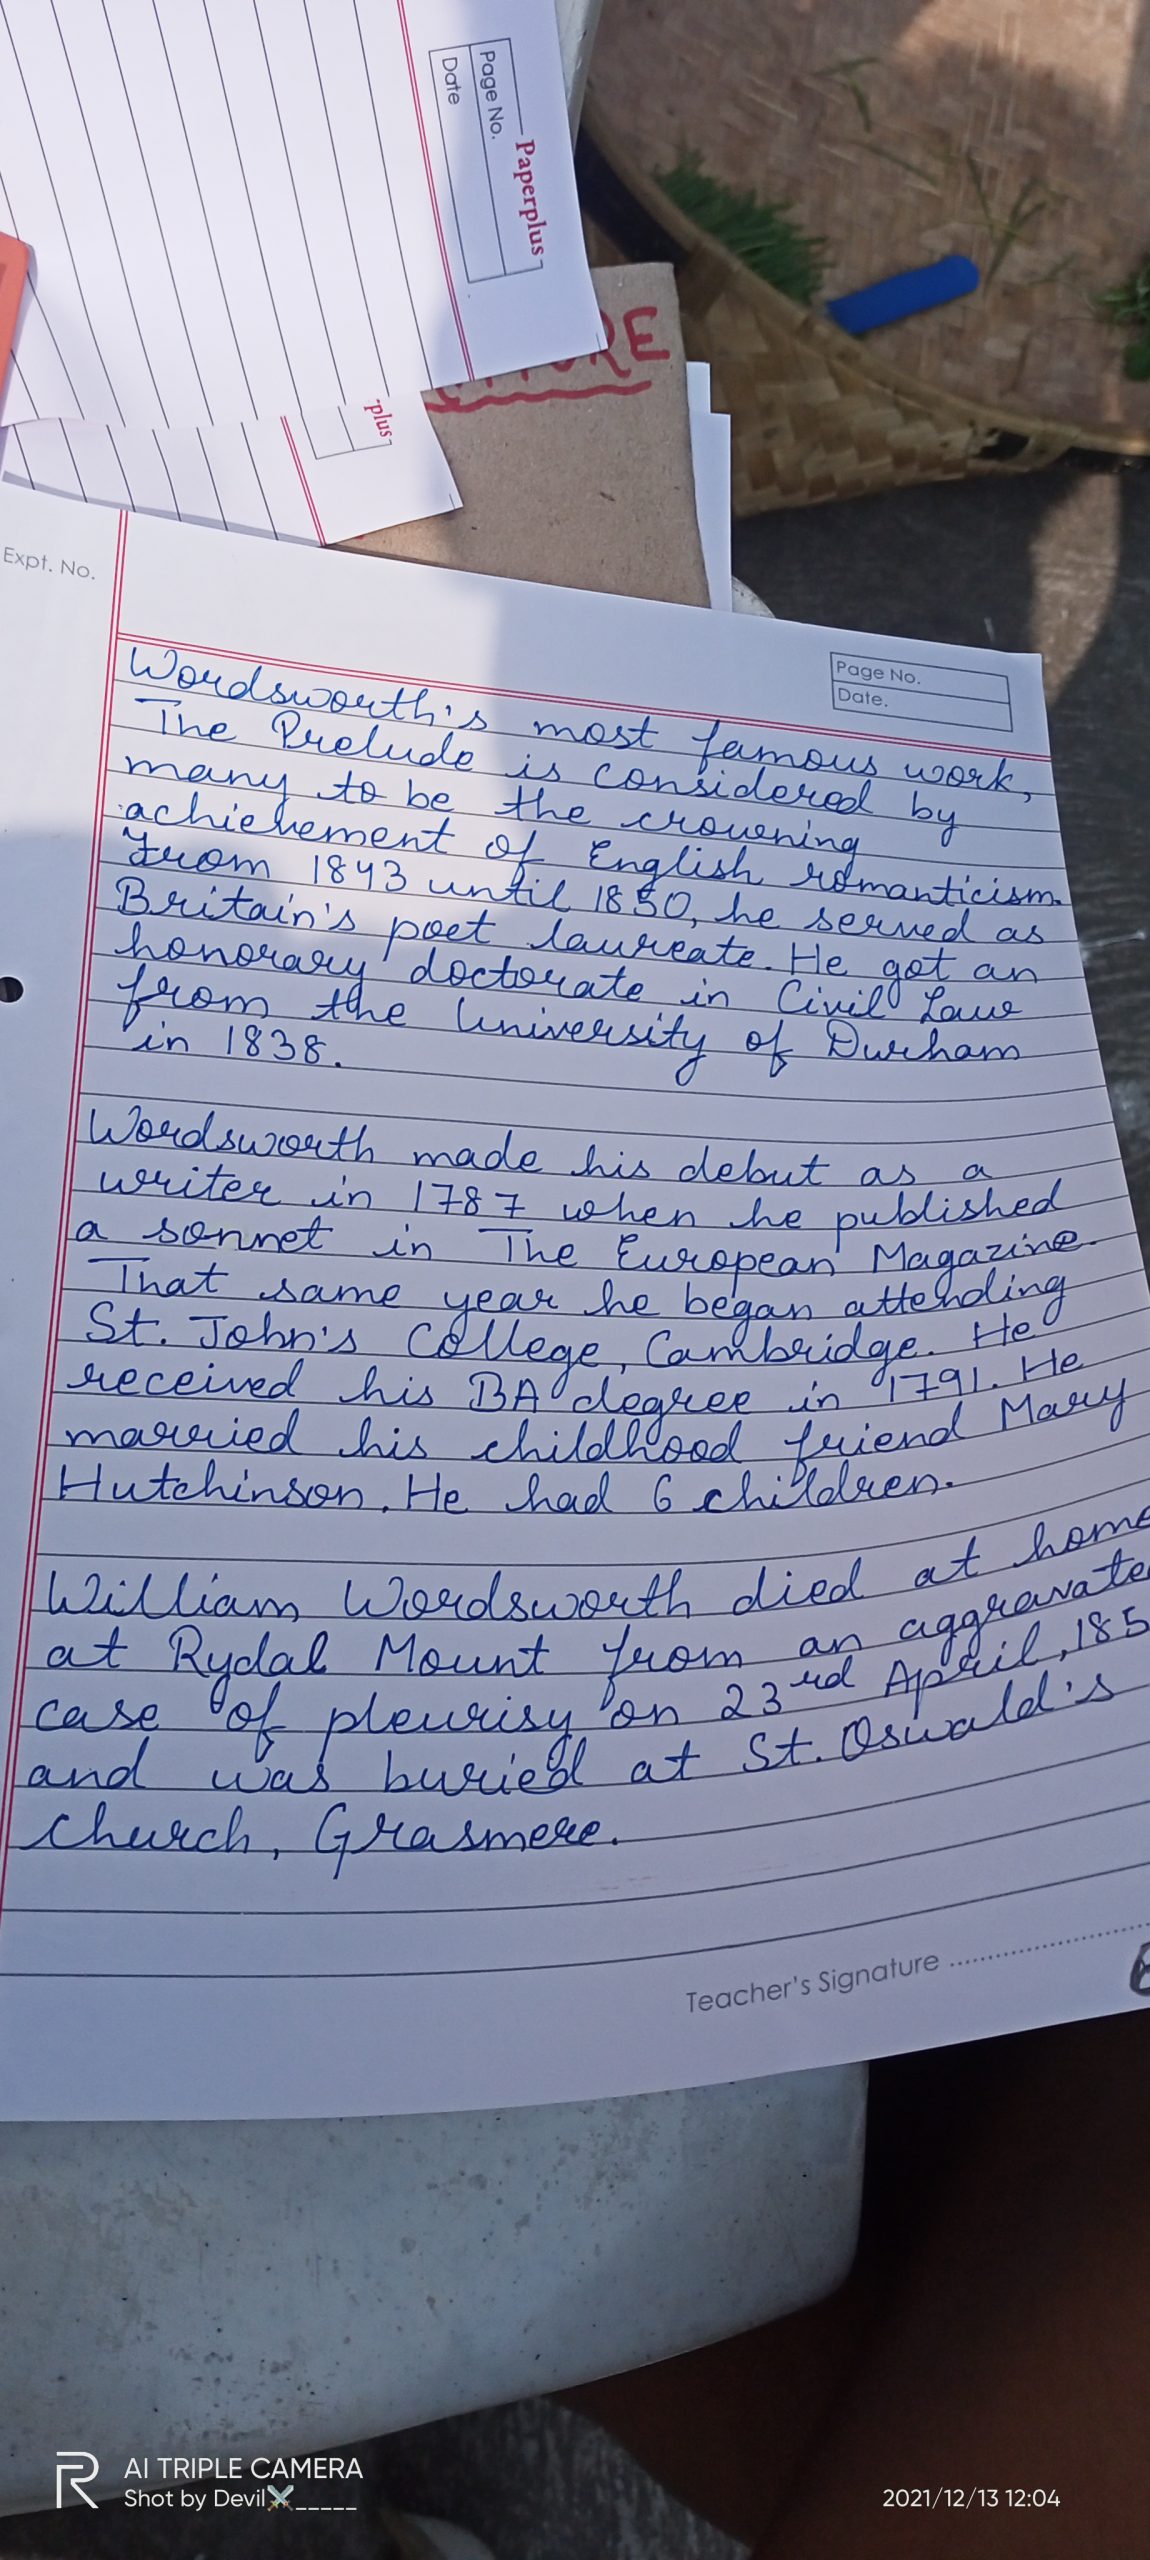 Paperplus
Page No.
Date
RE
plus
Expt. No.
Page No.
Date.
Wordsworth's most famous work,
The Prelude is considered by
many to be the crowning
achievement of English romanticism.
From 1843 until 1850, he served as
Britain's poet laureate. He got an
honorary doctorate in Civil Law
from the University of Durham
in 1838.
Wordsworth made his debut as a
writer in 1787 when he published
a sonnet in The European Magazine.
That same year he began attending
St. John's College, Cambridge. He
received his BA degree in 1791. He
married his childhood friend Mary
Hutchinson. He had 6 children.
William Wordsworth died at home
at Rydal Mount from an aggravate
case of pleurisy on 23rd April, 185
and was buried at St. Oswald's
church, Grasmere.
Teacher's Signature
R AI TRIPLE CAMERA
Shot by Devil⚔_____
2021/12/13 12:04